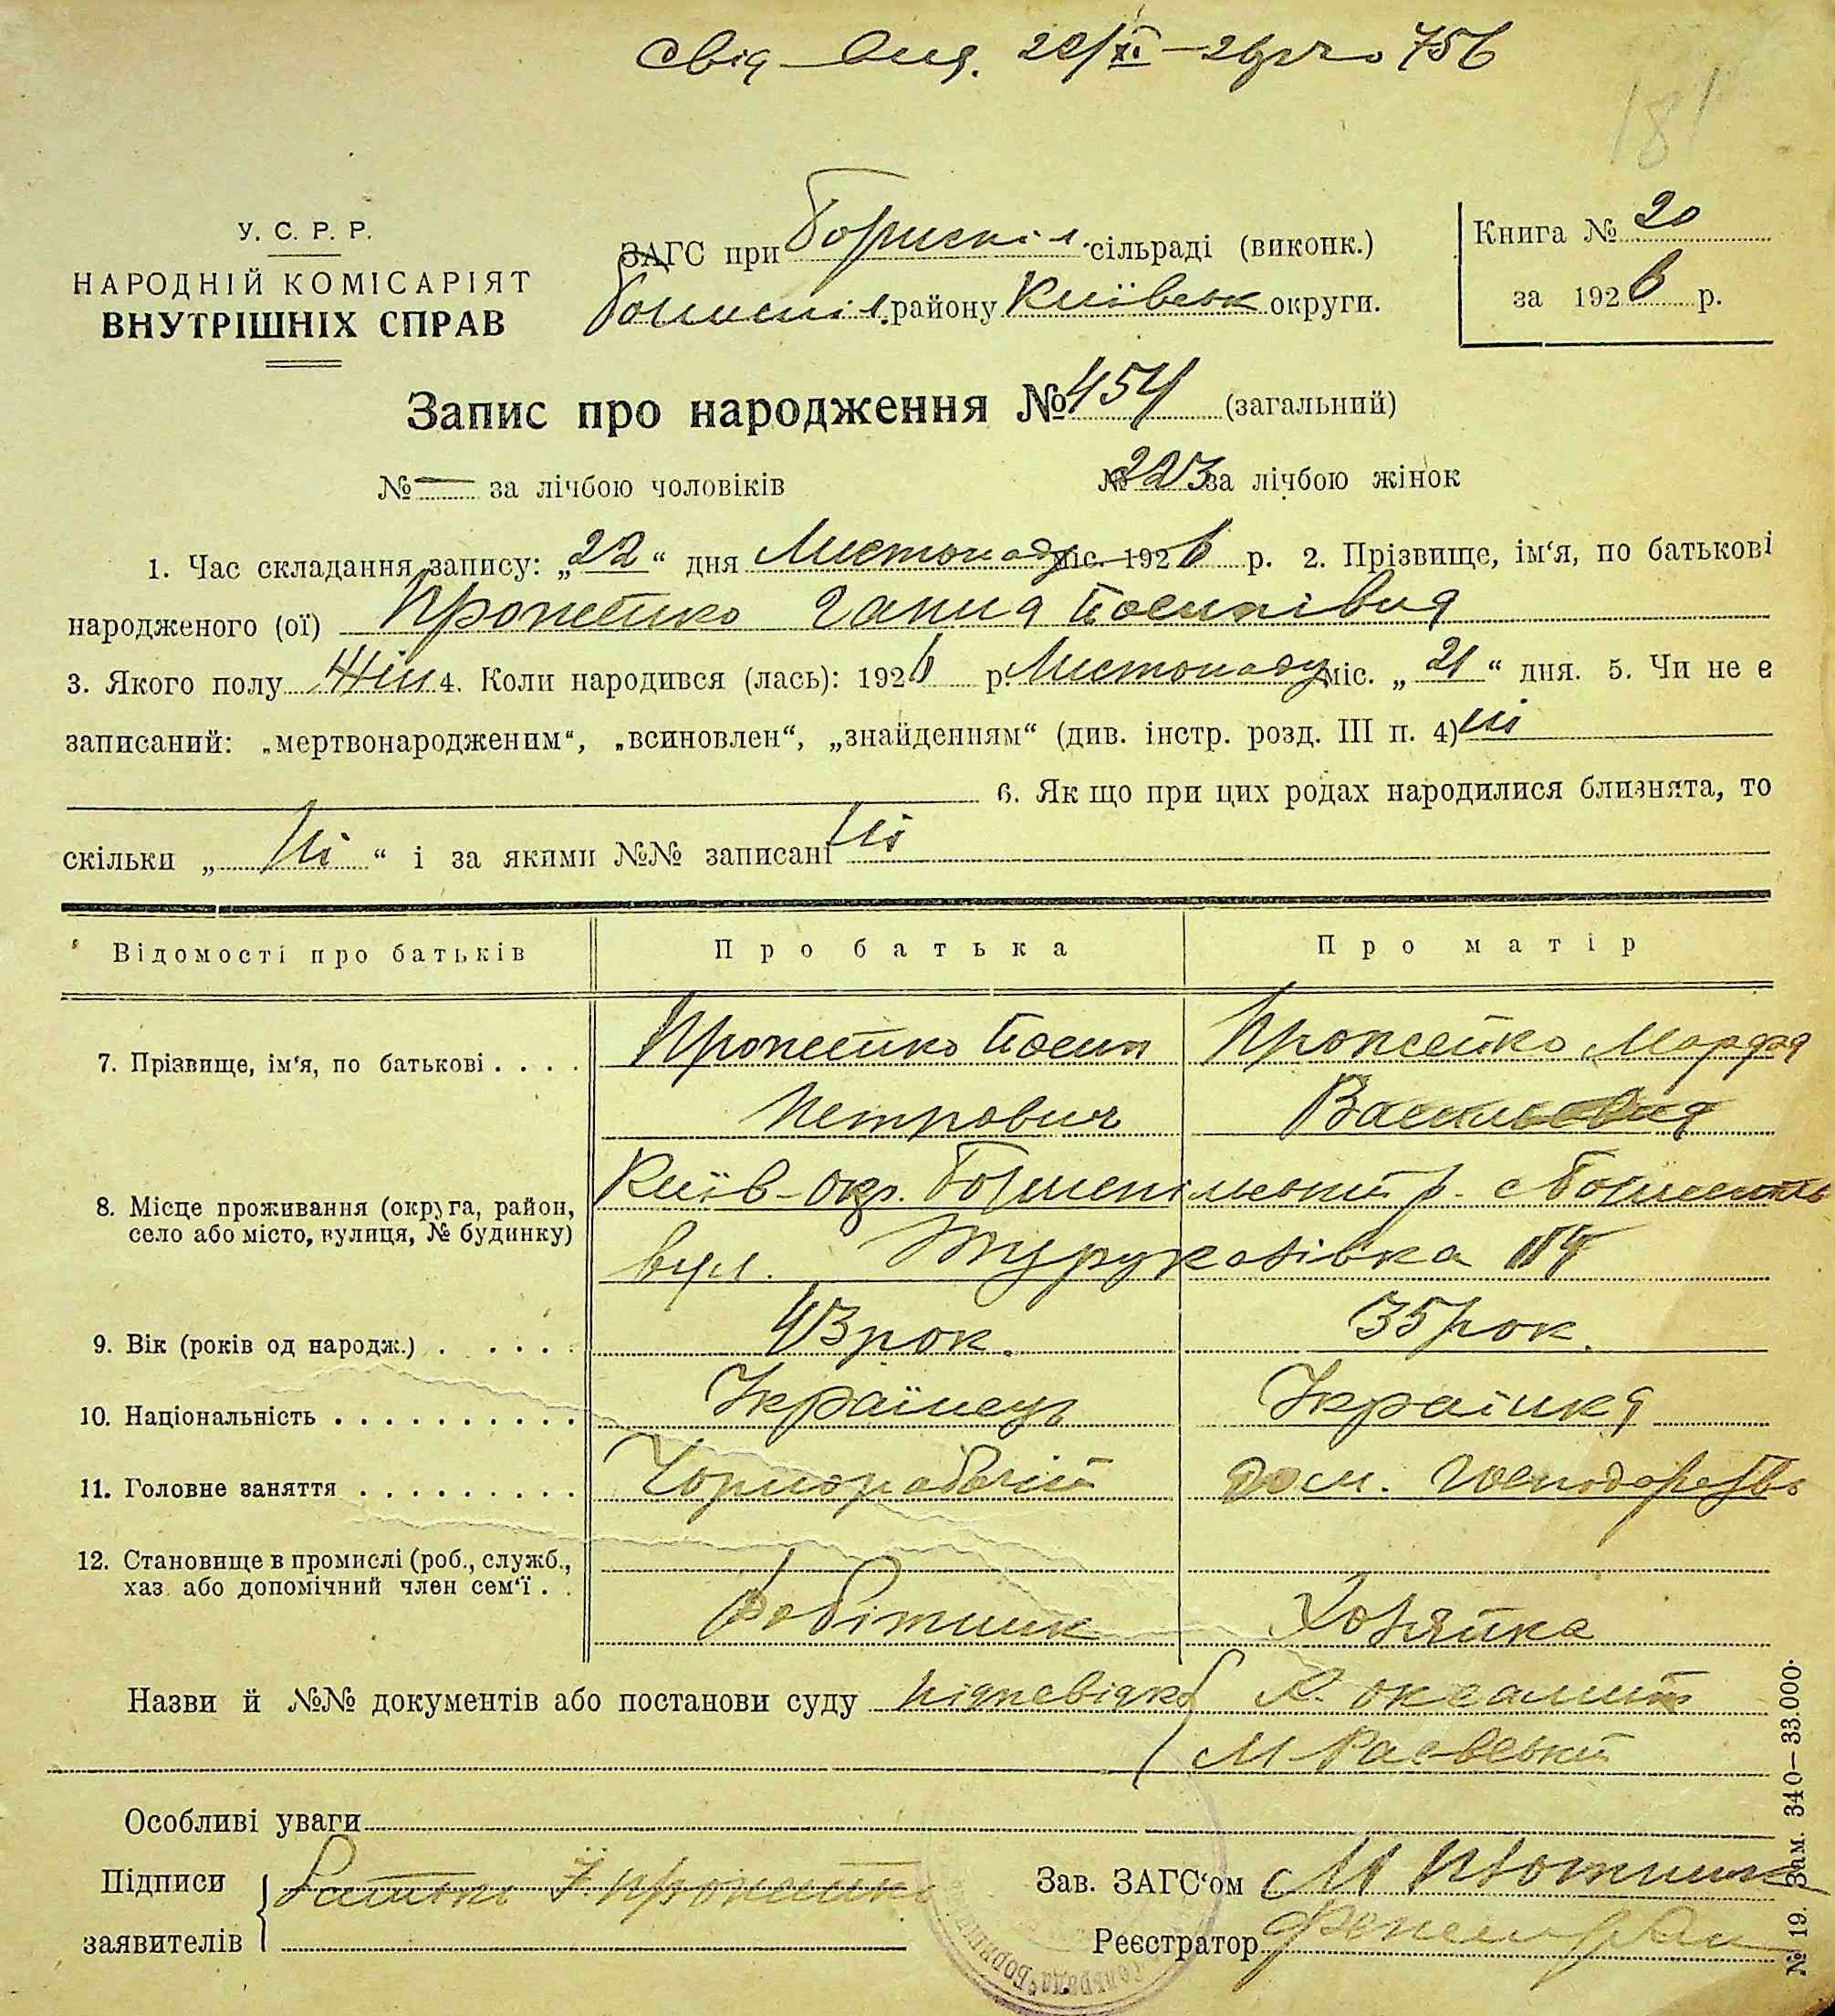 Свід. вид. 22/XI - 26 р. за № 756
181
У. С. Р. Р.
НАРОДНІЙ КОМІСАРІЯТ
ВНУТРІШНІХ СПРАВ
ЗАГС при Бориспіл. сільраді (виконк.)
Бориспіл. району Київськ округи.
Книга № 20
за 1926 р.
Запис про народження № 454 (загальний)
№ — за лічбою чоловіків № 223 за лічбою жінок
1. Час складання запису: „22“ дня Листопаду міс. 1926 р. 2. Прізвище, ім‘я, по батькові
народженого (ої) Пропейко Ганна Йосипівна
3. Якого полу Жін 4. Коли народився (лась): 1926 р. Листопаду міс. „21“ дня. 5. Чи не є
записаний: „мертвонародженим“, „всиновлен“, „знайденням“ (див. інстр. розд. III п. 4) ні
6. Як що при цих родах народилися близнята, то
скільки „ Ні “ і за якими №№ записані Ні
Відомості про батьків Про батька Про матір
7. Прізвище, ім‘я, по батькові . . . . Пропейко Йосип Пропейко Марфа
Петрович Васильовна
8. Місце проживання (округа, район, село або місто, вулиця, № будинку) Київ-окр. Бориспільський р. с Бориспіль
вул.
9. Вік (років од народж.) . . . . . 43 рок. 35 рок.
10. Національність . . . . . . . . . . . Українець Українка
11. Головне заняття . . . . . . . . . . Чорноробочій Дом. Господарство
12. Становище в промислі (роб., служб.,
хаз. або допомічний член сем‘ї . . Робітник Хозяйка
Назви й №№ документів або постанови суду
М Раєвський
Особливі уваги
Підписи
заявителів
Батько Й. Пропейко
Зав. ЗАГС‘ом
Реєстратор
№ 19. Зам. 340—33.000.